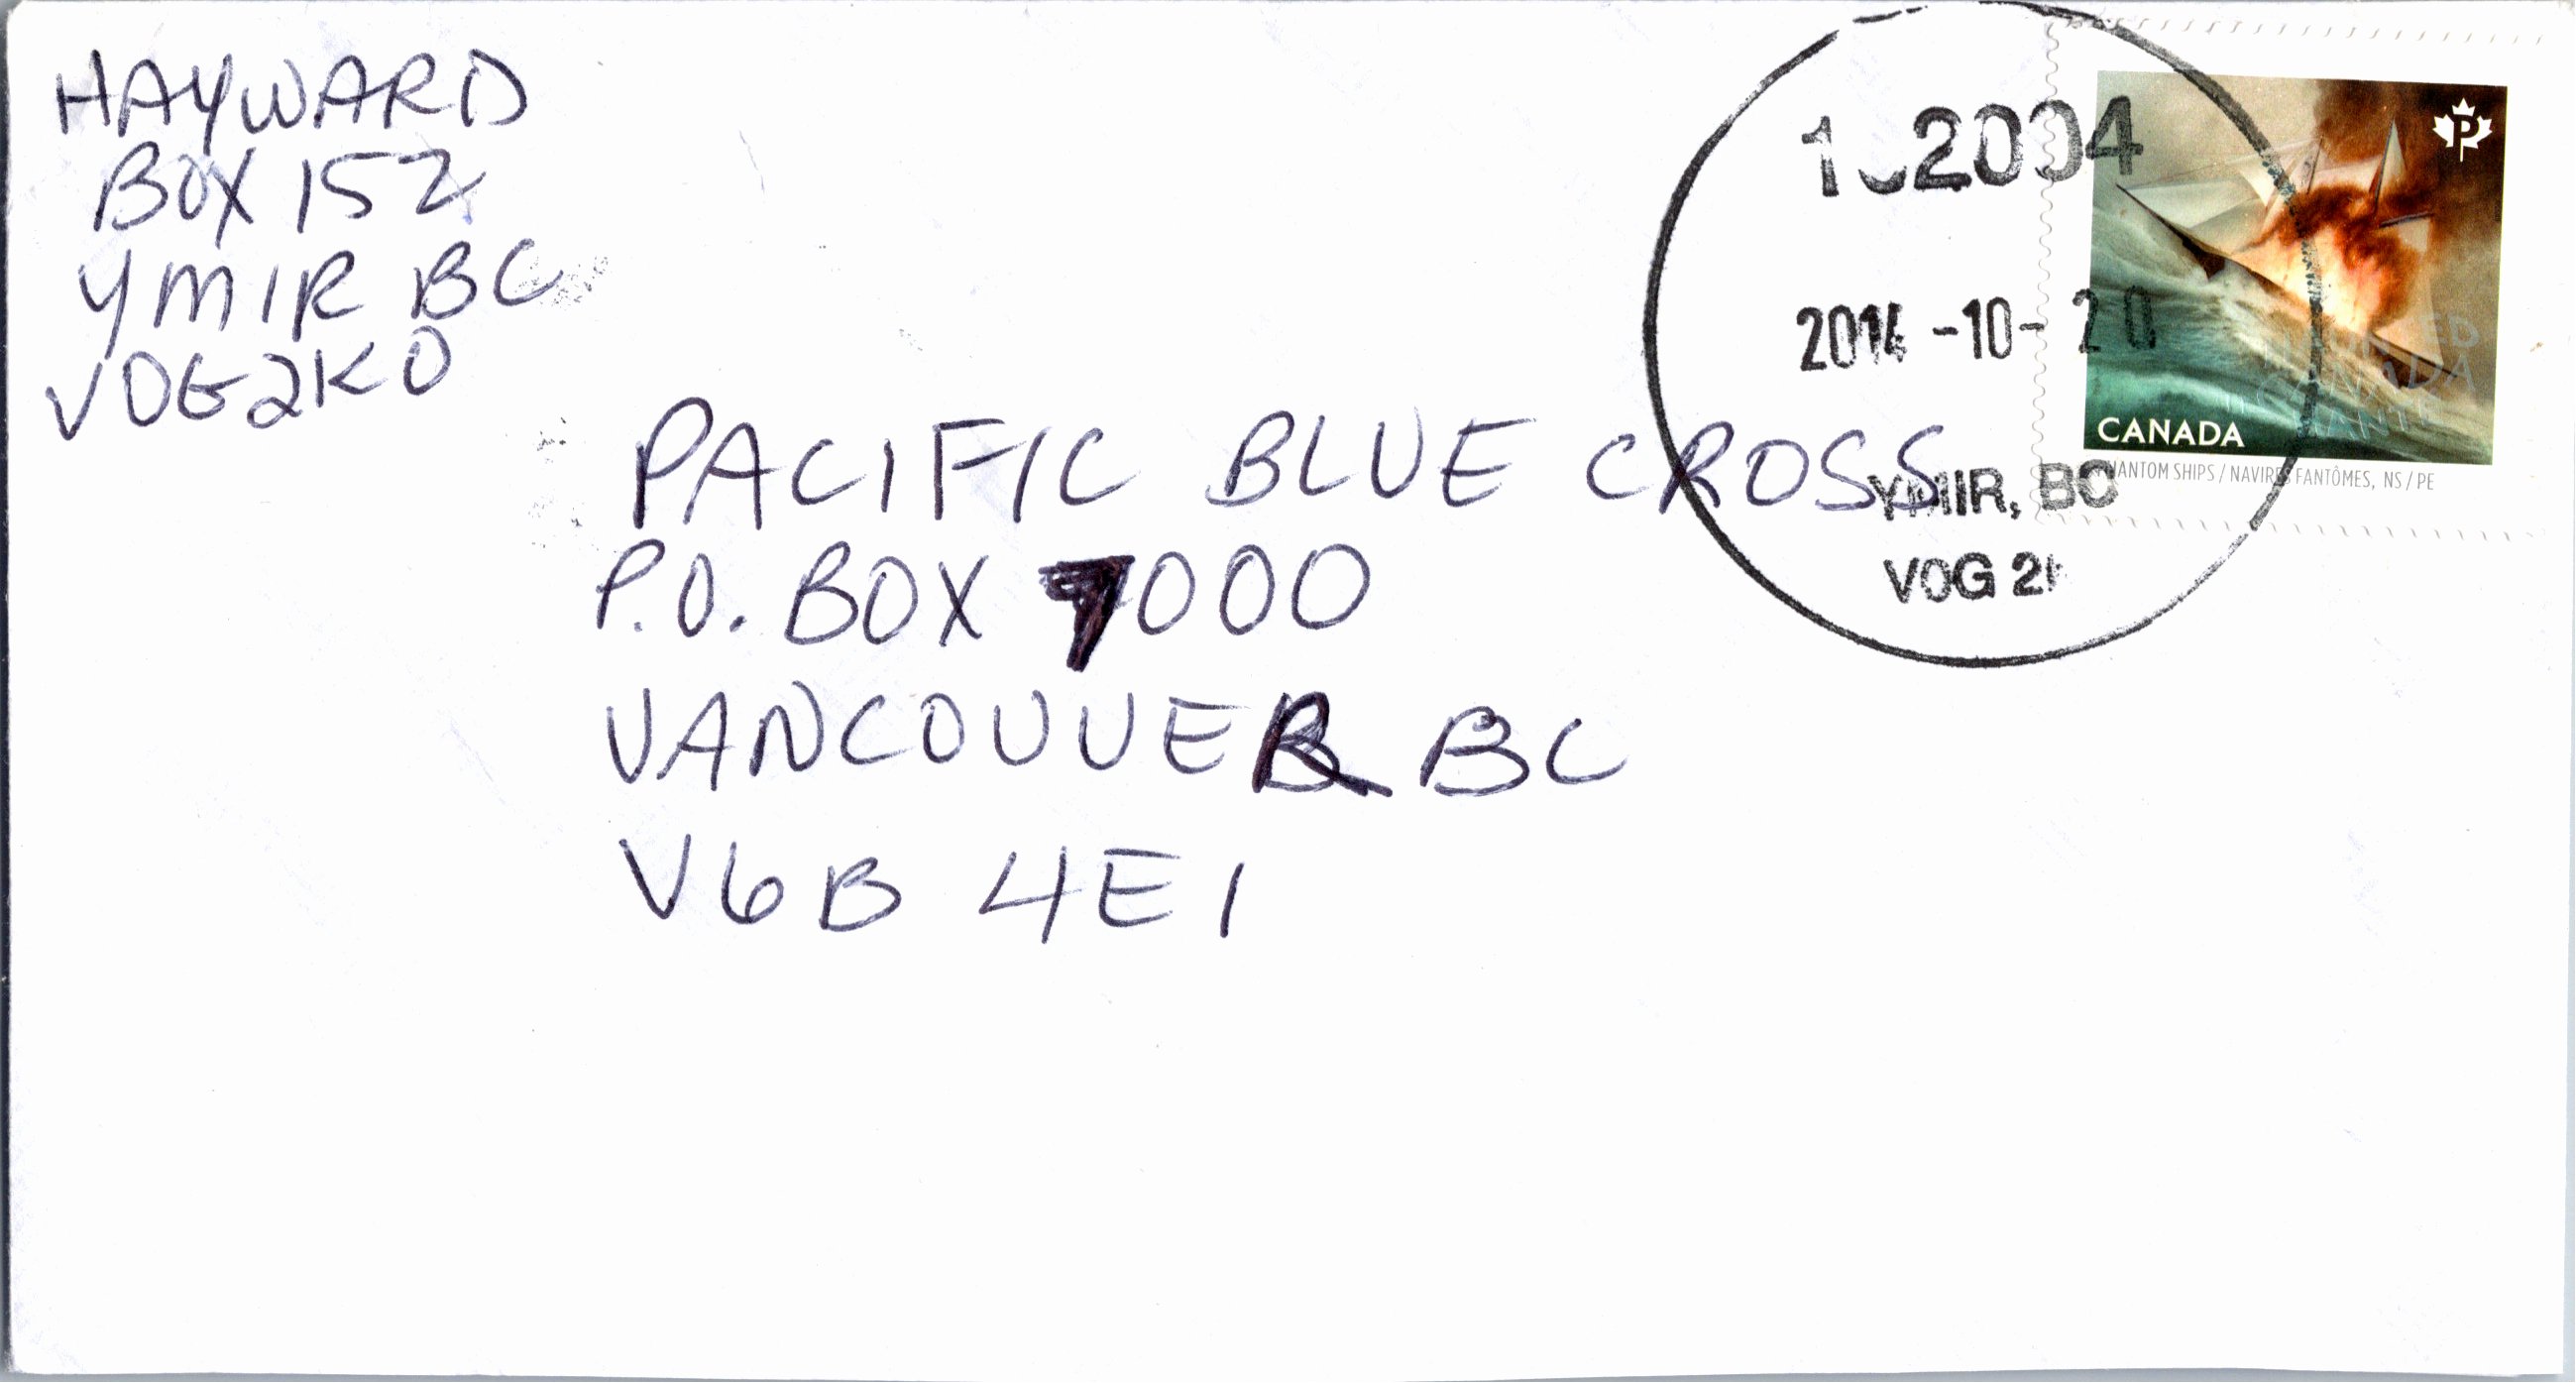 HAYWARD
BOX 152
YMIR BC
V0G2K0
PACIFIC BLUE CROSS
P.O. BOX 7000
VANCOUVER BC
V6B 4E1
2004
-10-20
YMIR, BC
V0G 2
P
HAUNTED
CANADA
HANTÉ
CANADA
PHANTOM SHIPS / NAVIRES FANTÔMES, NS / PE